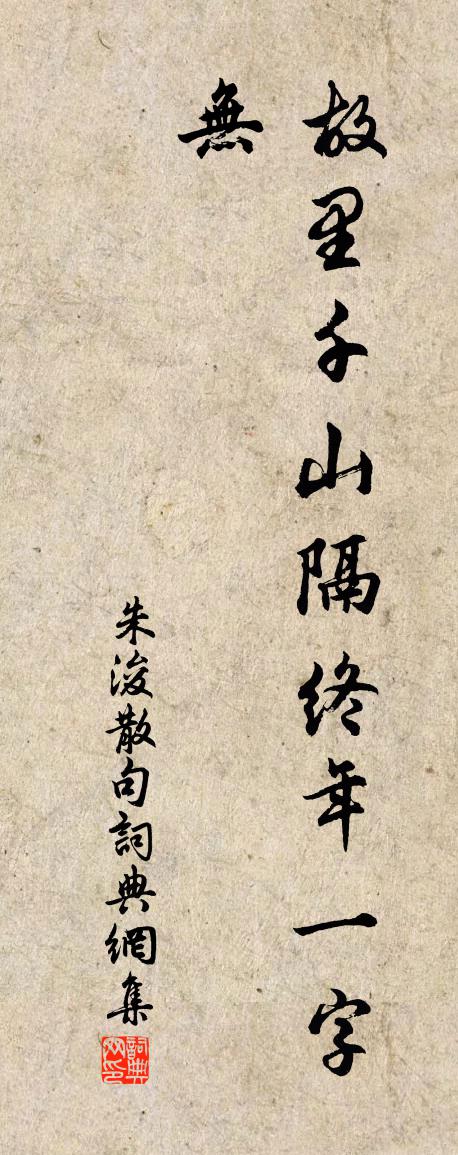 故里千山隔終年一字
無
朱浚散句詞典網集
詞典網印